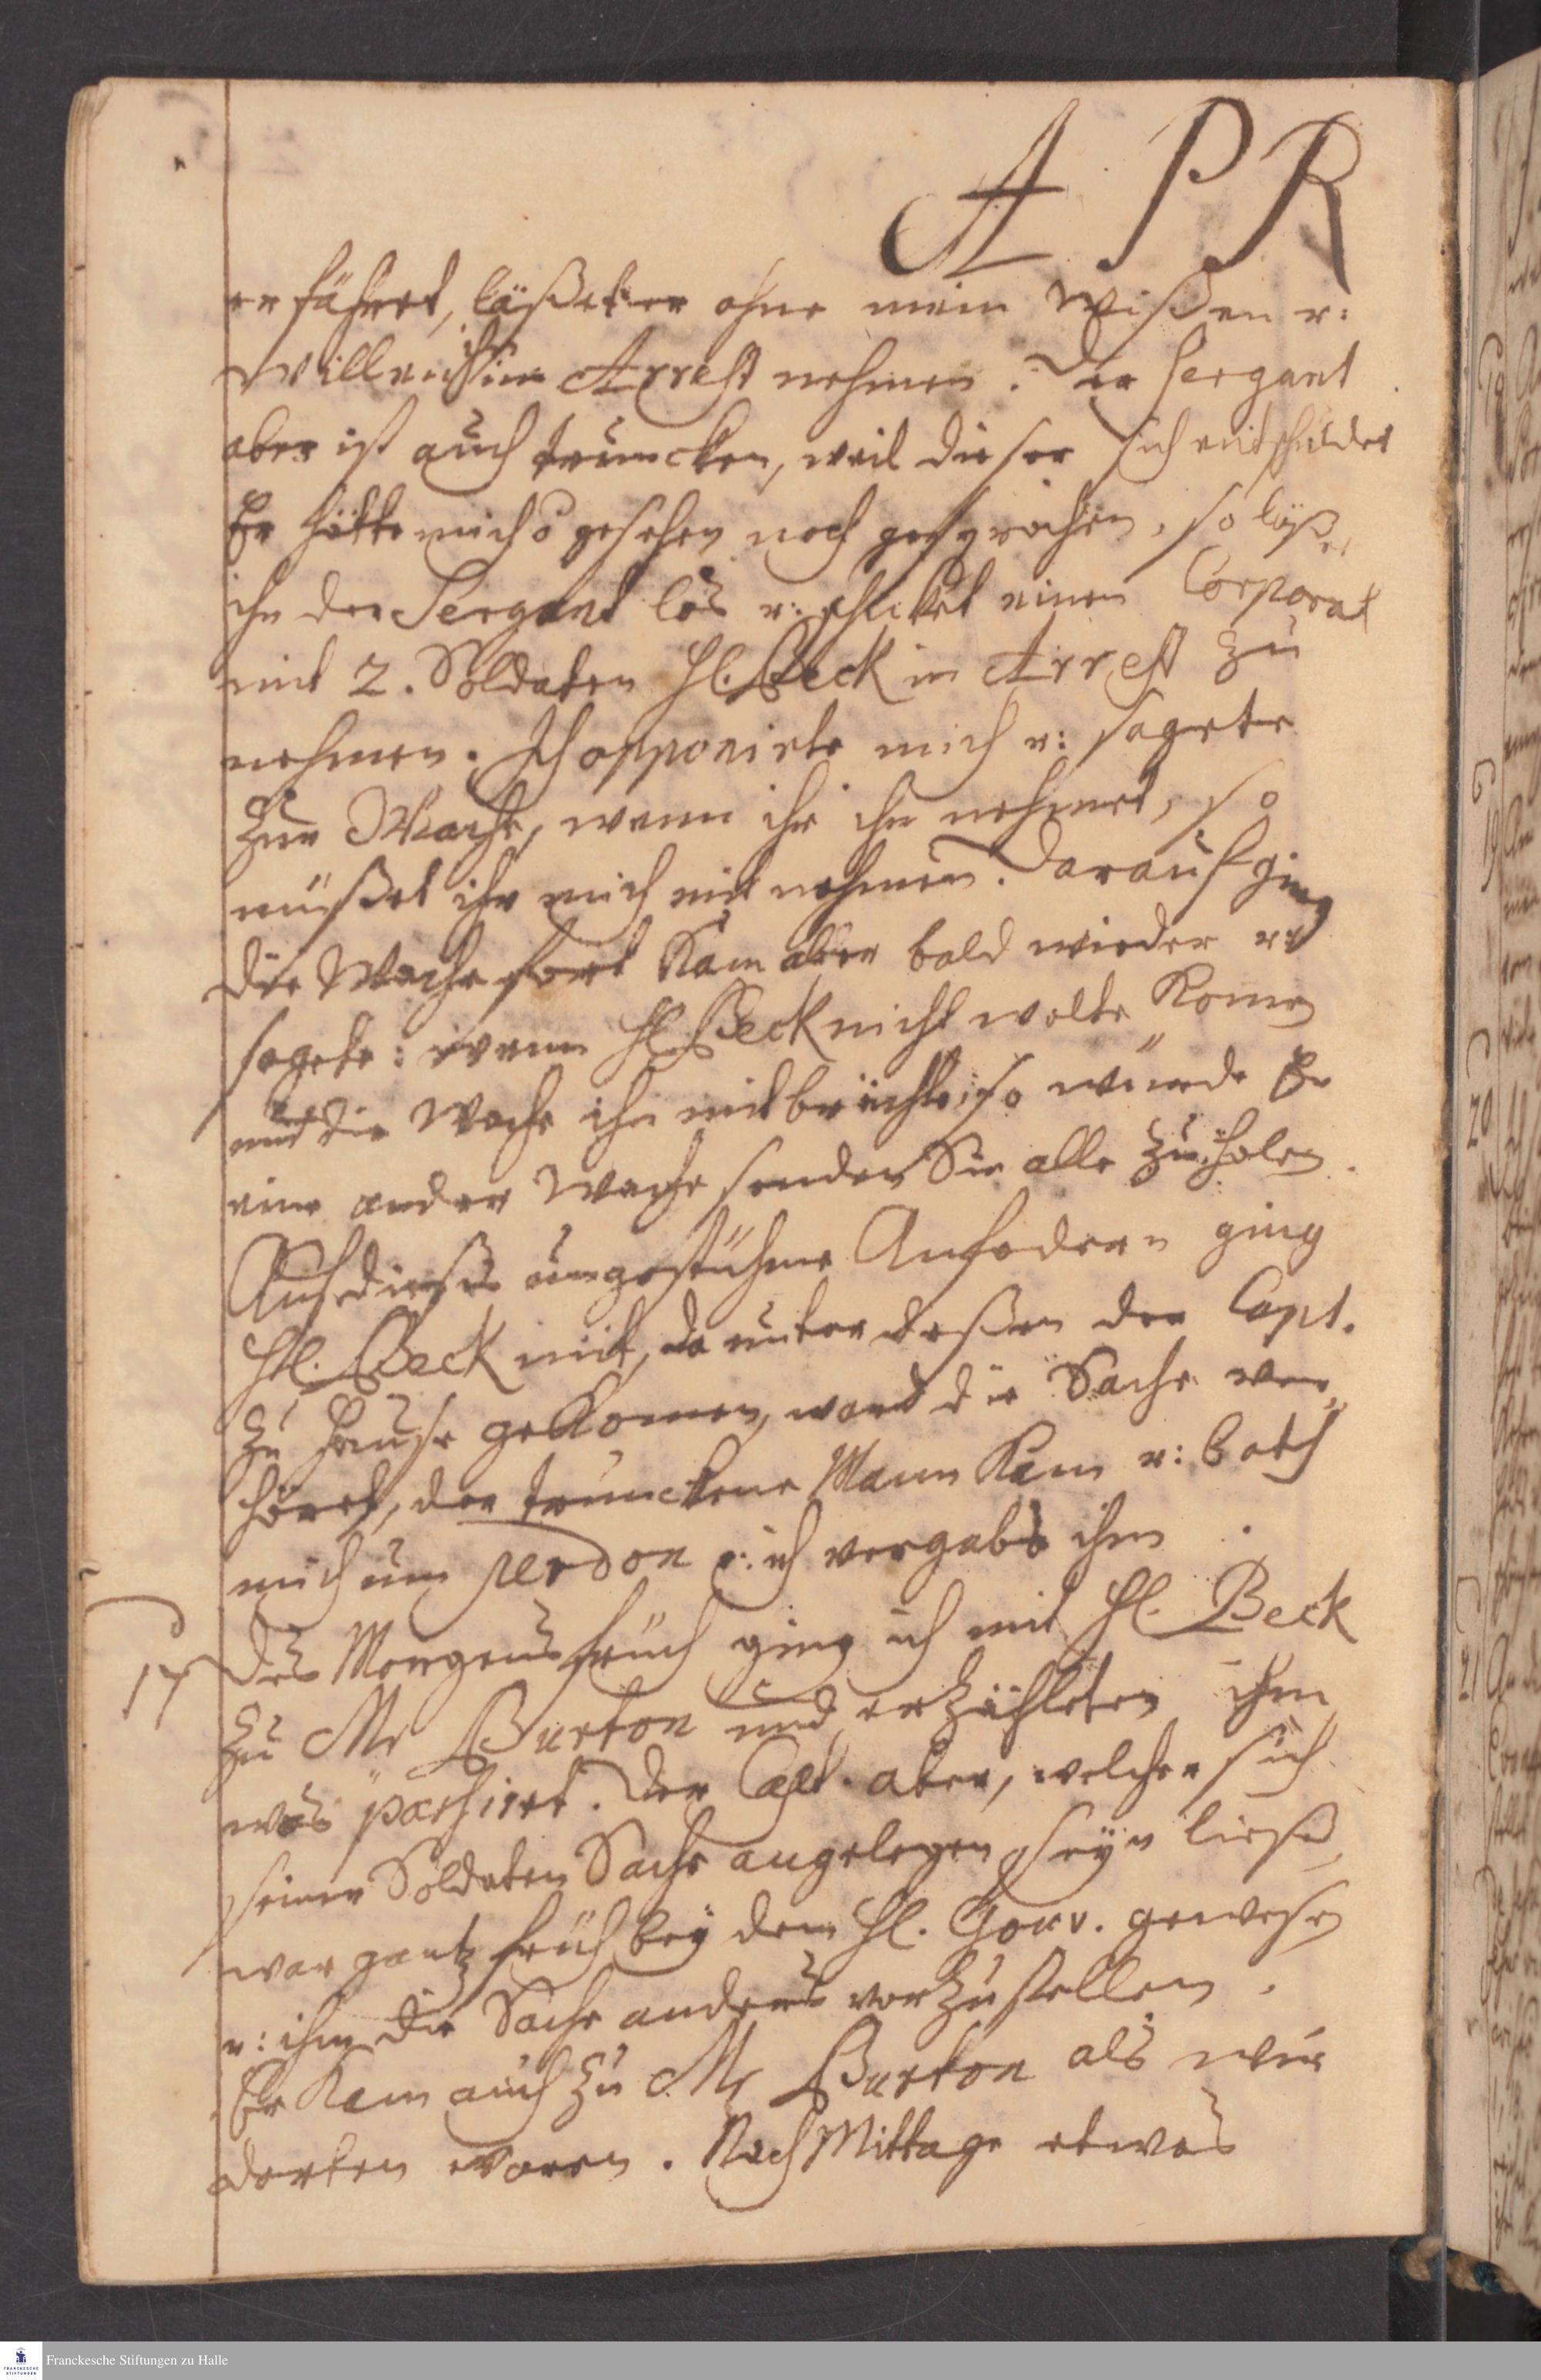 APR
erfähret, läßet er ohne mein Wißen u:
Willen ihn im Arrest nehmen. Der Sergant
aber ist auch truncken, weil dieser sich entschuldet
Er hätte mich gesehen noch gesprochen, so läßet
ihn der Sergant los u: schicket einen Corporal
mit 2. Soldaten H. Beck in Arrest zu
nehmen. Ich opponirte mich u: sagete
zur Wache, wenn ihr ihn nehmet, so
müßet ihr mich mit nehmen. Darauf ging
die Wache fort kam aber bald wieder u:
sagete: wenn H. Beck nicht wolte komen
und die Wache ihn mitbrächte, so würde Er
eine ander Wache senden Sie alle zu holen.
Auf dieses ungestühme Anfodern ging
H. Beck mit, da unter deßen der Capt.
zu Hause gekomen, ward die Sache ver-
höret, der trunckene Mann kam u: bath
mich um perdon u: ich vergabs ihm.
17 Des Morgens früh ging ich mit H. Beck
zu Mr Burton und erzähleten ihm
was passiret. Der Capt. aber, welcher sich
seiner Soldaten Sache angelegen seyn ließ,
war gantz früh bey dem H. Gouv. gewesen
u: ihm die Sache anders vorzustellen.
Er kam auch zu Mr Burton als wir
dorten waren. Nach Mittage etwas
Franckesche Stiftungen zu Halle